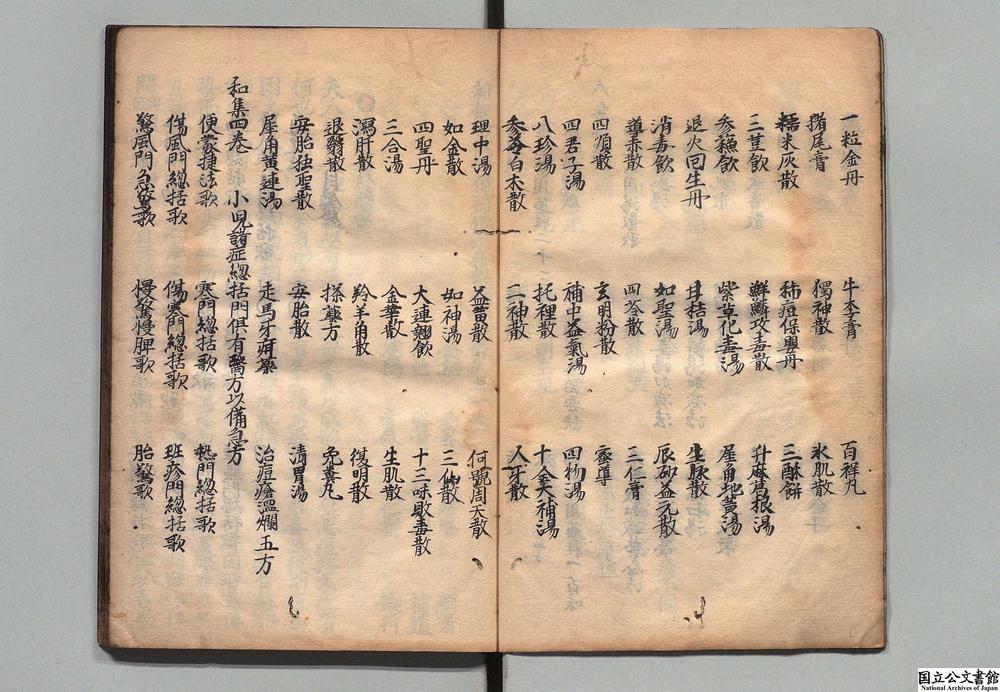 一粒金丹　牛李膏　百祥丸
猪尾膏　獨神散　氷肌散
糯米灰散　稀痘保嬰丹　三酥餅
三豆飲　鮮鱗攻毒散　升麻葛根湯
參蘓飲　紫草化毒湯　犀角地黃湯
退火回生丹　甘桔湯　生脉散
消毒飲　如聖湯　辰砂益元散
導赤散　四苓散　三仁膏
四順散　玄明粉散　蜜導
四君子湯　補中益氣湯　四物湯
八珍湯　托裡散　十全大補湯
參苓白术散　二神散　人牙散
理中湯　益黃散　何號周天散
如金散　如神湯　三仙散
四聖丹　大連翹飲　十三味敗毒散
三合湯　金華散　生肌散
瀉肝散　羚羊角散　復明散
退翳散　探藥方　兔糞丸
安胎独聖散　安胎散　清胃湯
犀角黃連湯　走馬牙疳藥　治痘瘡溫爛五方
和集四巻　小児諸症總括門俱有醫方以備急方
便蒙捷法歌　寒門總括歌　熱門總括歌
傷風門總括歌　傷寒門總括歌　斑疹門總括歌
驚風門急驚歌　慢驚慢脾歌　胎驚歌
国立公文書館
National Archives of Japan